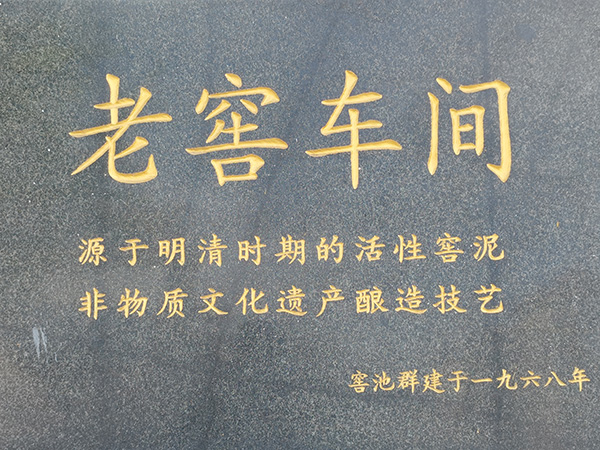 老窖车间
源于明清时期的活性窖泥
非物质文化遗产酿造技艺
窖池群建于一九六八年